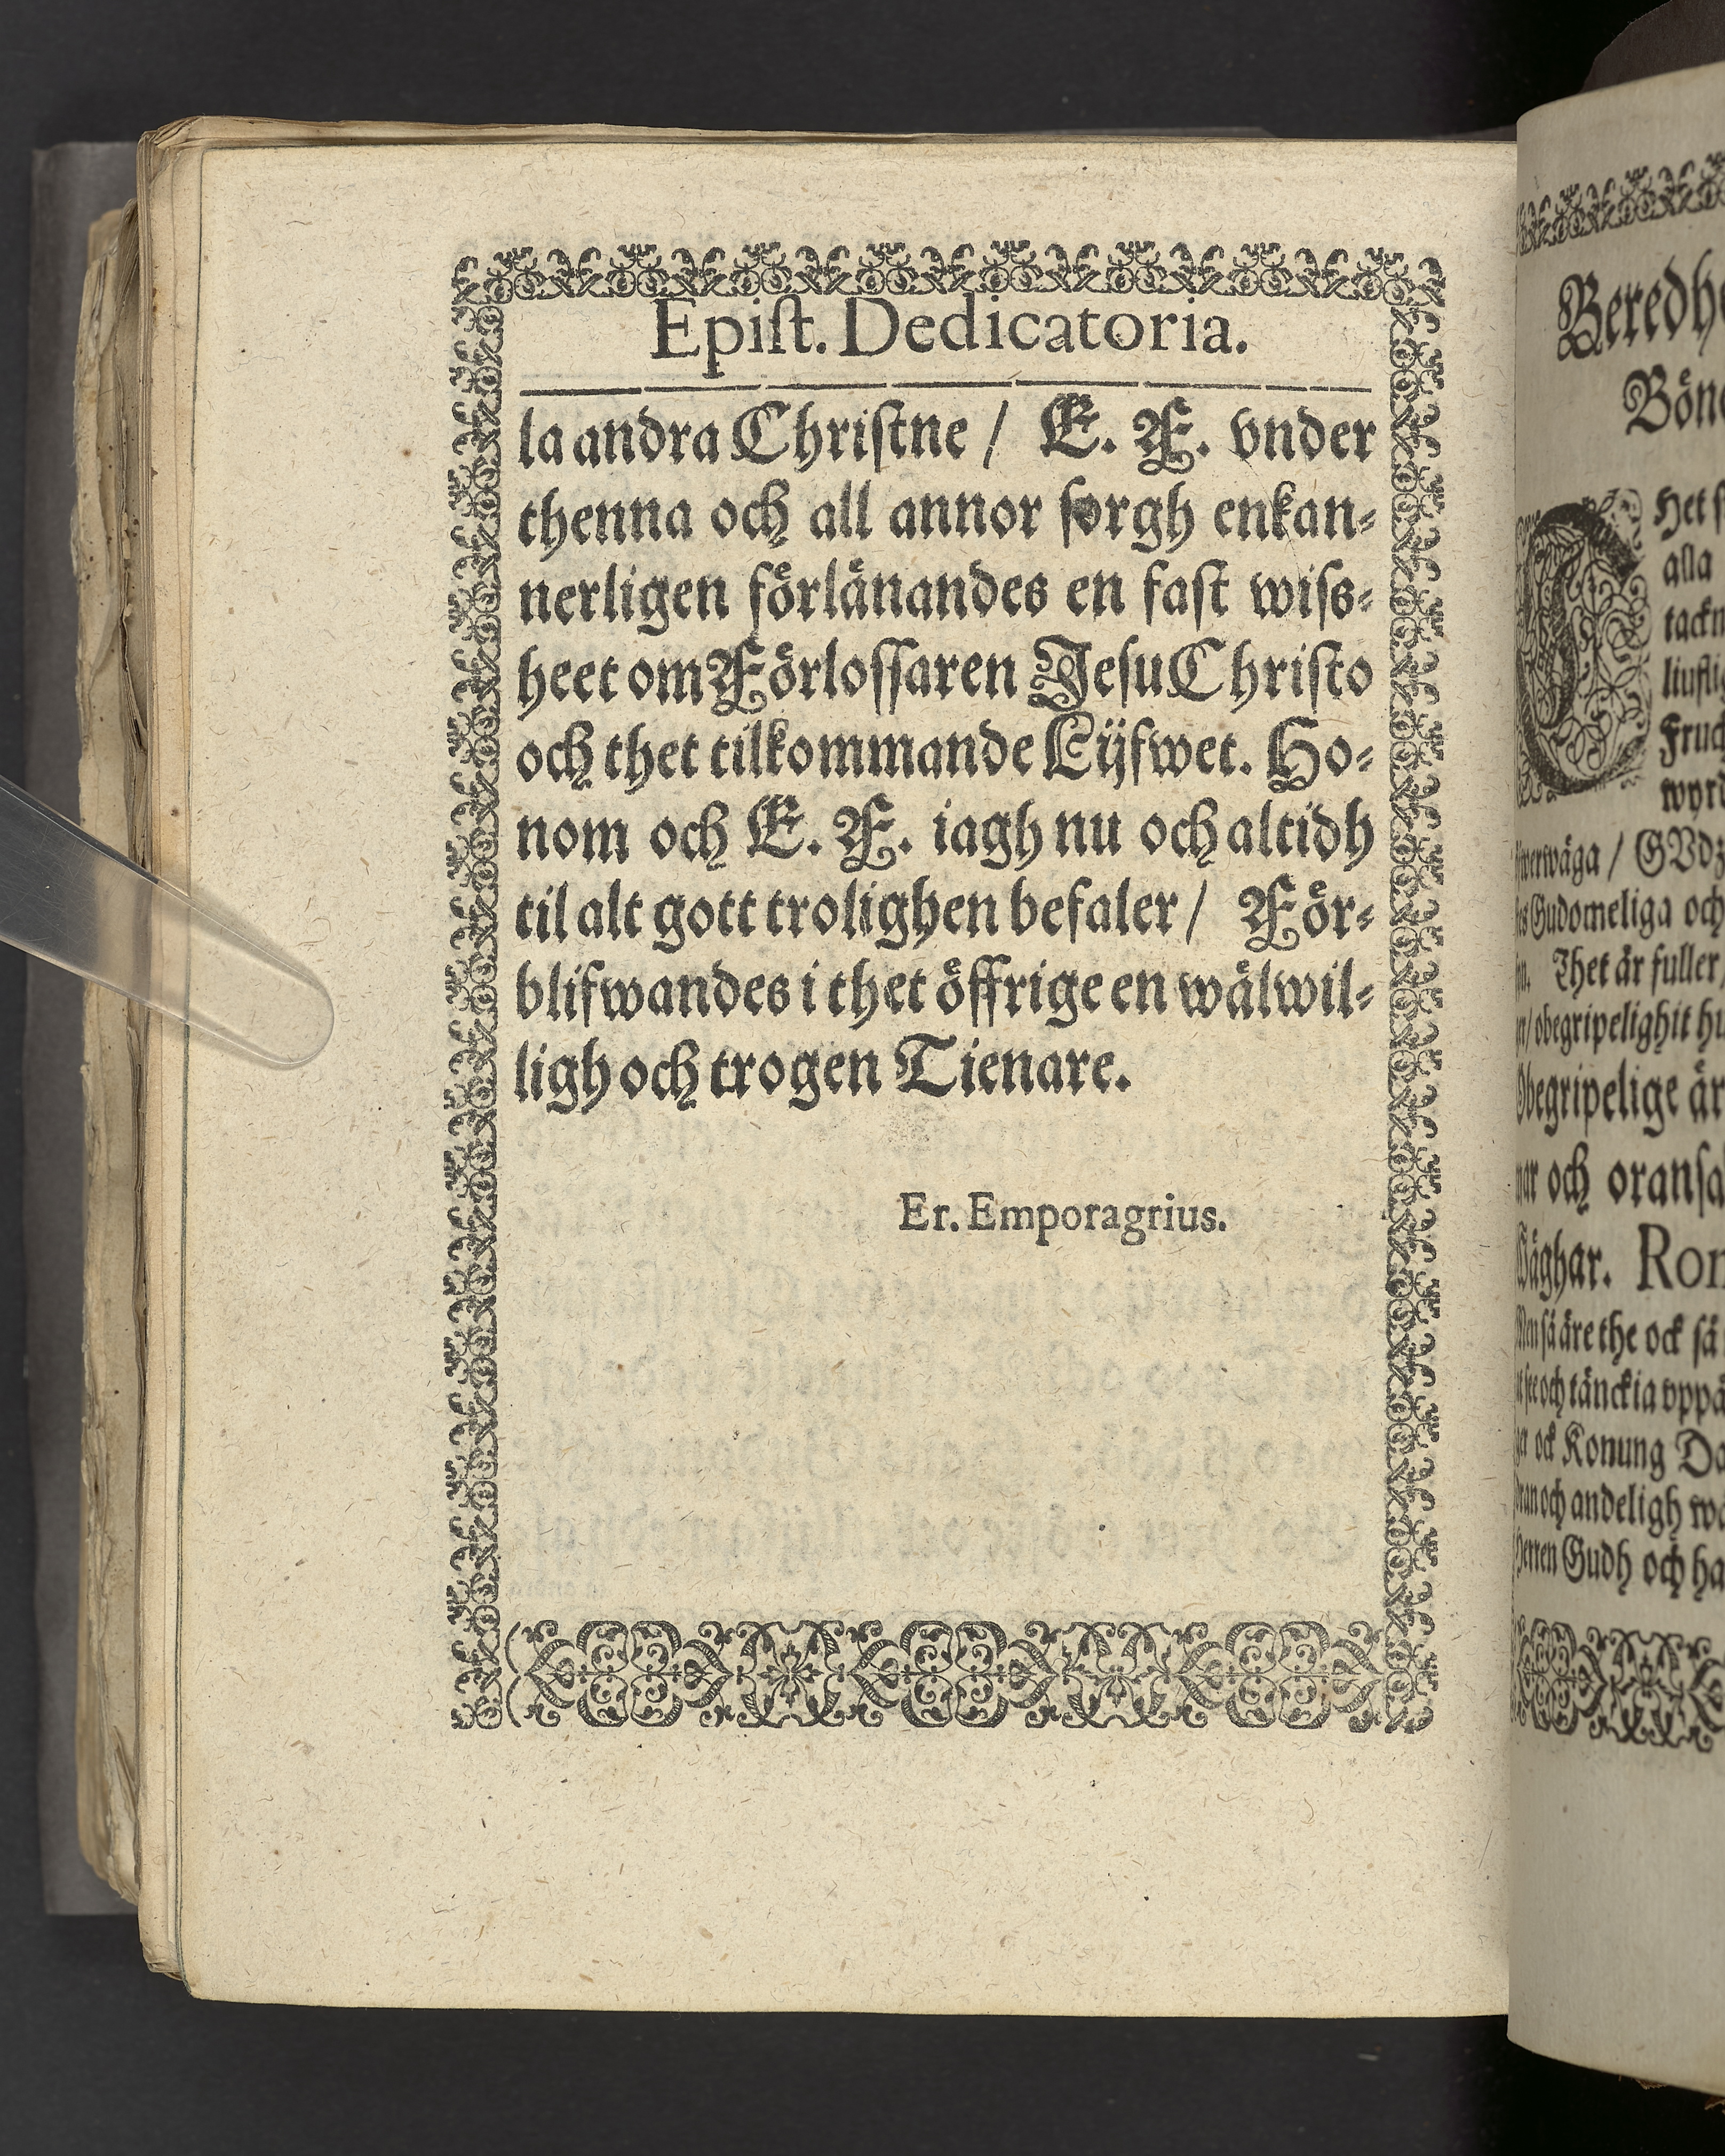 Epiſt. Dedicatoria.
la andra Chriſtne / E. F. vnder
thenna och all annor ſorgh enkan⸗
nerligen förlänandes en faſt wiſs⸗
heet om Förloſſaren Jeſu Chriſto
och thet tilkommande Lijfwet. Ho⸗
nom och E. F. iagh nu och altidh
til alt gott trolighen befaler / För⸗
blifwandes i thet öffrige en wälwil⸗
ligh och trogen Tienare.
Er. Emporagrius.
Beredhe
Böne
Het
alla
tackn
liufli
Fruc
wyrd
/ GVdz
Gudomeliga och
Thet är fuller
/ obegripelighit hu
Obegripelige är
och oranſa
Wäghar. Rom
Men ſå äre the ock ſå
och tänckia vppå
ock Konung Da
och andeligh wä
Herren Gudh och ha